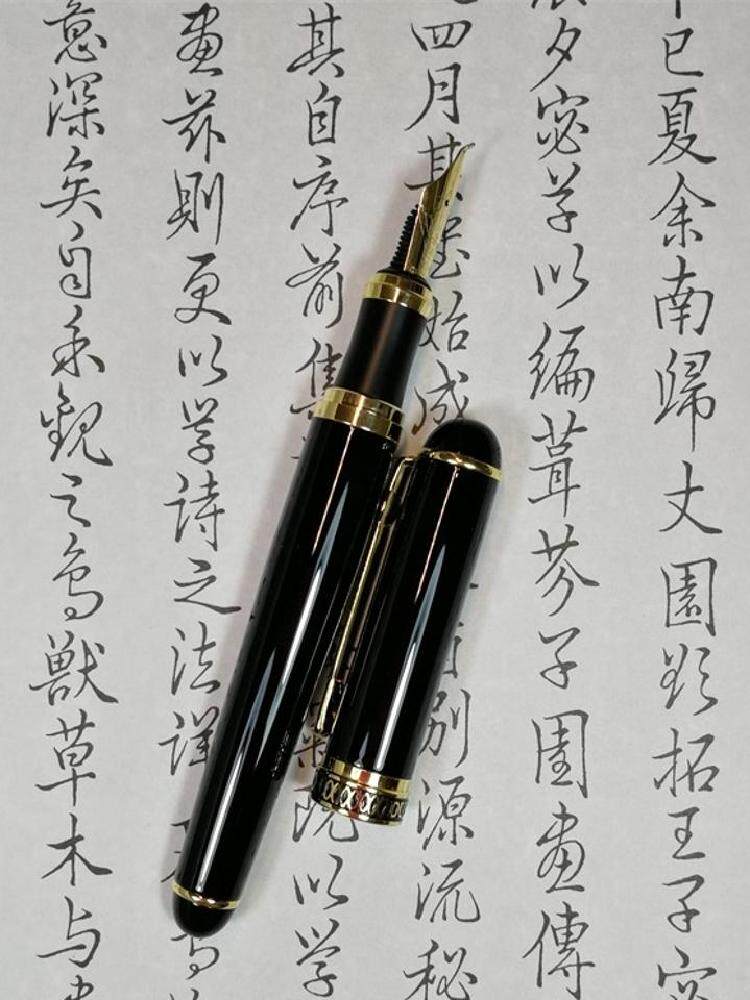 巳夏余南歸丈園欵拓王子宓
夕宓草以編葺芥子園畫傳
四月其始成別源流秘
其自序前集以学
畫茲則更以学詩之法謹
意深矣自余觀之鳥獸草木与